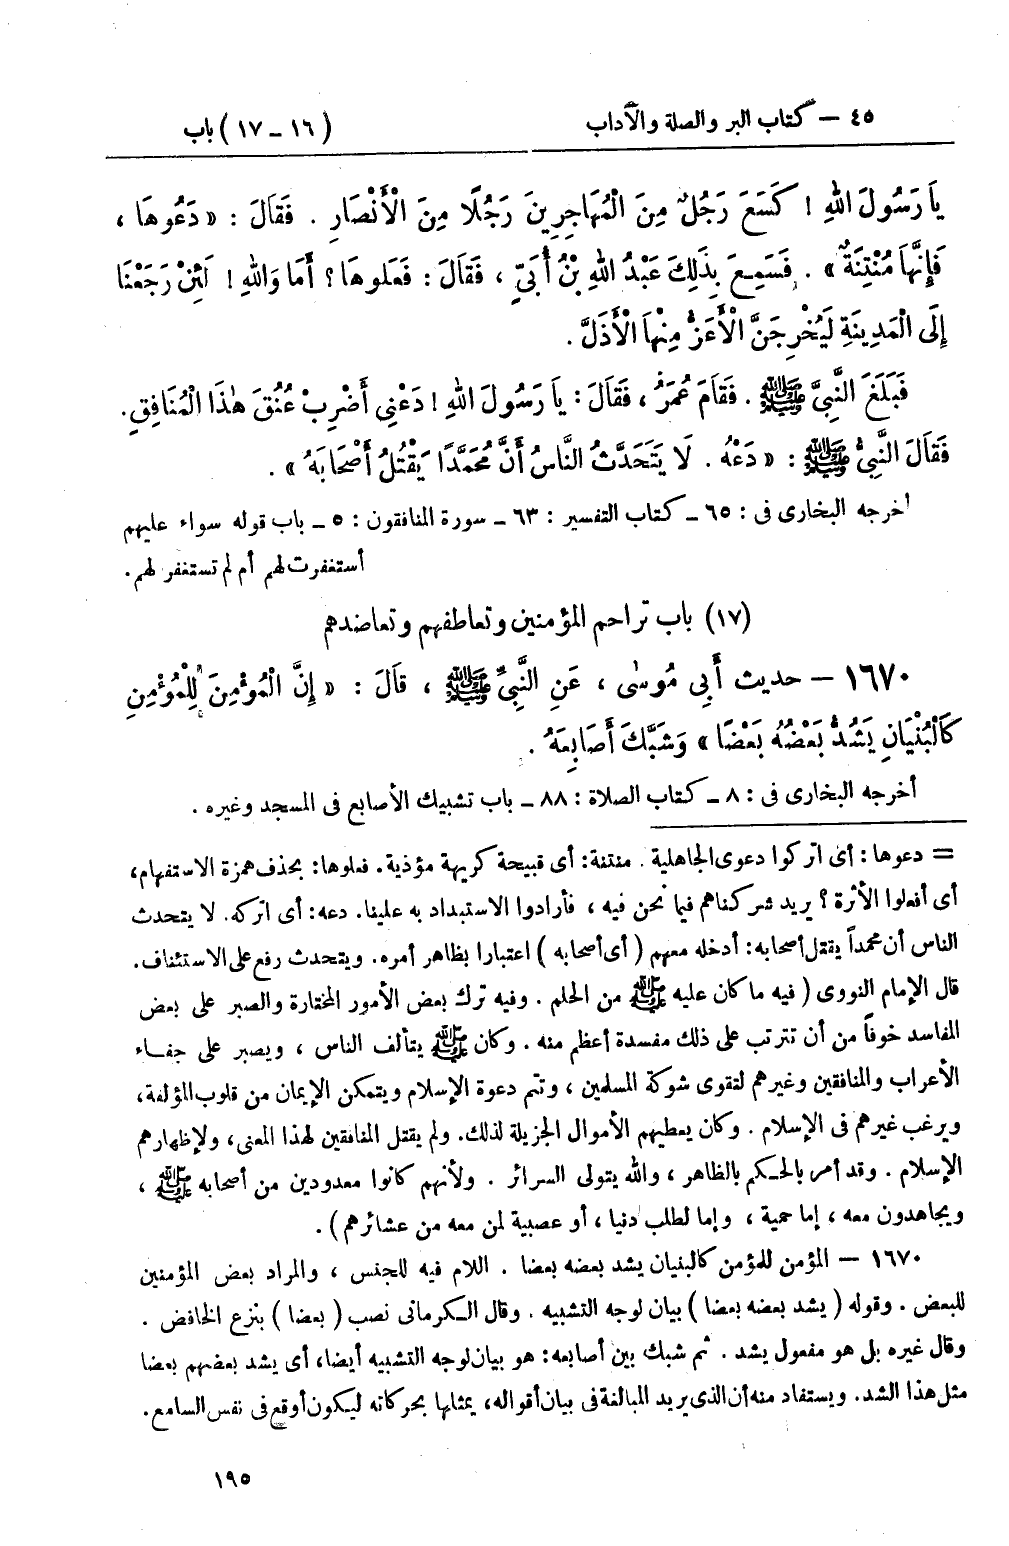 ٤٥ – كتاب البر والصلة والآداب (١٦ – ١٧) باب
يَا رَسُولَ اللهِ ! كَسَعَ رَجُلٌ مِنَ الْمُهَاجِرِينَ رَجُلًا مِنَ الْأَنْصَارِ . فَقَالَ : « دَعُوهَا ،
فَإِنَّهَا مُنْتِنَةٌ » . فَسَمِعَ بِذَلِكَ عَبْدُ اللهِ بْنُ أُبَيٍّ ، فَقَالَ : فَعَلُوهَا ؟ أَمَا وَاللهِ ! لَئِنْ رَجَعْنَا
إِلَى الْمَدِينَةِ لَيُخْرِجَنَّ الْأَعَزُّ مِنْهَا الْأَذَلَّ .
فَبَلَغَ النَّبِيَّ ﷺ . فَقَامَ عُمَرُ ، فَقَالَ : يَا رَسُولَ اللهِ ! دَعْنِي أَضْرِبْ عُنُقَ هٰذَا الْمُنَافِقِ .
فَقَالَ النَّبِيُّ ﷺ : « دَعْهُ . لَا يَتَحَدَّثُ النَّاسُ أَنَّ مُحَمَّدًا يَقْتُلُ أَصْحَابَهُ » .
أخرجه البخارى فى : ٦٥ – كتاب التفسير : ٦٣ – سورة المنافقون : ٥ – باب قوله سواء عليهم
أستغفرت لهم أم لم تستغفر لهم.
(١٧) باب تراحم المؤمنين وتعاطفهم وتعاضدهم
١٦٧٠ – حديث أَبِي مُوسٰى ، عَنِ النَّبِيِّ ﷺ ، قَالَ : « إِنَّ الْمُؤْمِنَ لِلْمُؤْمِنِ
كَالْبُنْيَانِ يَشُدُّ بَعْضُهُ بَعْضًا » وَشَبَّكَ أَصَابِعَهُ .
أخرجه البخارى فى : ٨ – كتاب الصلاة : ٨٨ – باب تشبيك الأصابع فى المسجد وغيره .
= دعوها : أى اتركوا دعوى الجاهلية . منتنة: أى قبيحة كريهة مؤذية. فعلوها: بحذف همزة الاستفهام،
أى أفعلوا الأثرة ؟ يريد شركناهم فيما نحن فيه ، فأرادوا الاستبداد به علينا. دعه: أى اتركه. لا يتحدث
الناس أن محمداً يقتل أصحابه: أدخله معهم ( أى أصحابه ) اعتبارا بظاهر أمره. ويتحدث رفع على الاستئناف.
قال الإمام النووى ( فيه ما كان عليه ﷺ من الحلم . وفيه ترك بعض الأمور المختارة والصبر على بعض
المفاسد خوفاً من أن تترتب على ذلك مفسدة أعظم منه . وكان ﷺ يتألف الناس ، ويصبر على جفاء
الأعراب والمنافقين وغيرهم لتقوى شوكة المسلمين ، وتتم دعوة الإسلام ويتمكن الإيمان من قلوب المؤلفة،
ويرغب غيرهم فى الإسلام . وكان يعطيهم الأموال الجزيلة لذلك. ولم يقتل المنافقين لهذا المعنى، ولإظهارهم
الإسلام . وقد أمر بالحكم بالظاهر ، والله يتولى السرائر . ولأنهم كانوا معدودين من أصحابه ﷺ ،
ويجاهدون معه ، إما حمية ، وإما لطلب دنيا ، أو عصبية لمن معه من عشائرهم ) .
١٦٧٠ – المؤمن للمؤمن كالبنيان يشد بعضه بعضا . اللام فيه للجنس ، والمراد بعض المؤمنين
للبعض . وقوله ( يشد بعضه بعضا ) بيان لوجه التشبيه . وقال الكرمانى نصب ( بعضا ) بنزع الخافض .
وقال غيره بل هو مفعول يشد . ثم شبك بين أصابعه: هو بيان لوجه التشبيه أيضا، أى يشد بعضهم بعضا
مثل هذا الشد. ويستفاد منه أن الذى يريد المبالغة فى بيان أقواله، يمثلها بحركاته ليكون أوقع فى نفس السامع.
١٩٥